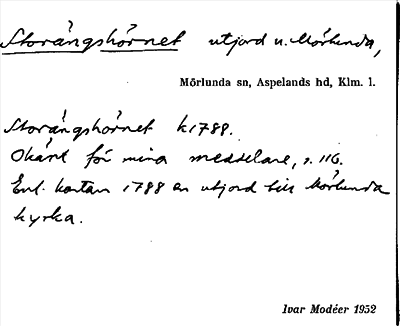 Storängshörnet utjord u. Mörlunda,
Mörlunda sn, Aspelands hd, Klm. l.
Storängshörnet k 1788.
Okänt för mina meddelare, s. 116.
Enl. kartan 1788 en utjord till Mörlunda
kyrka.
Ivar Modéer 1952